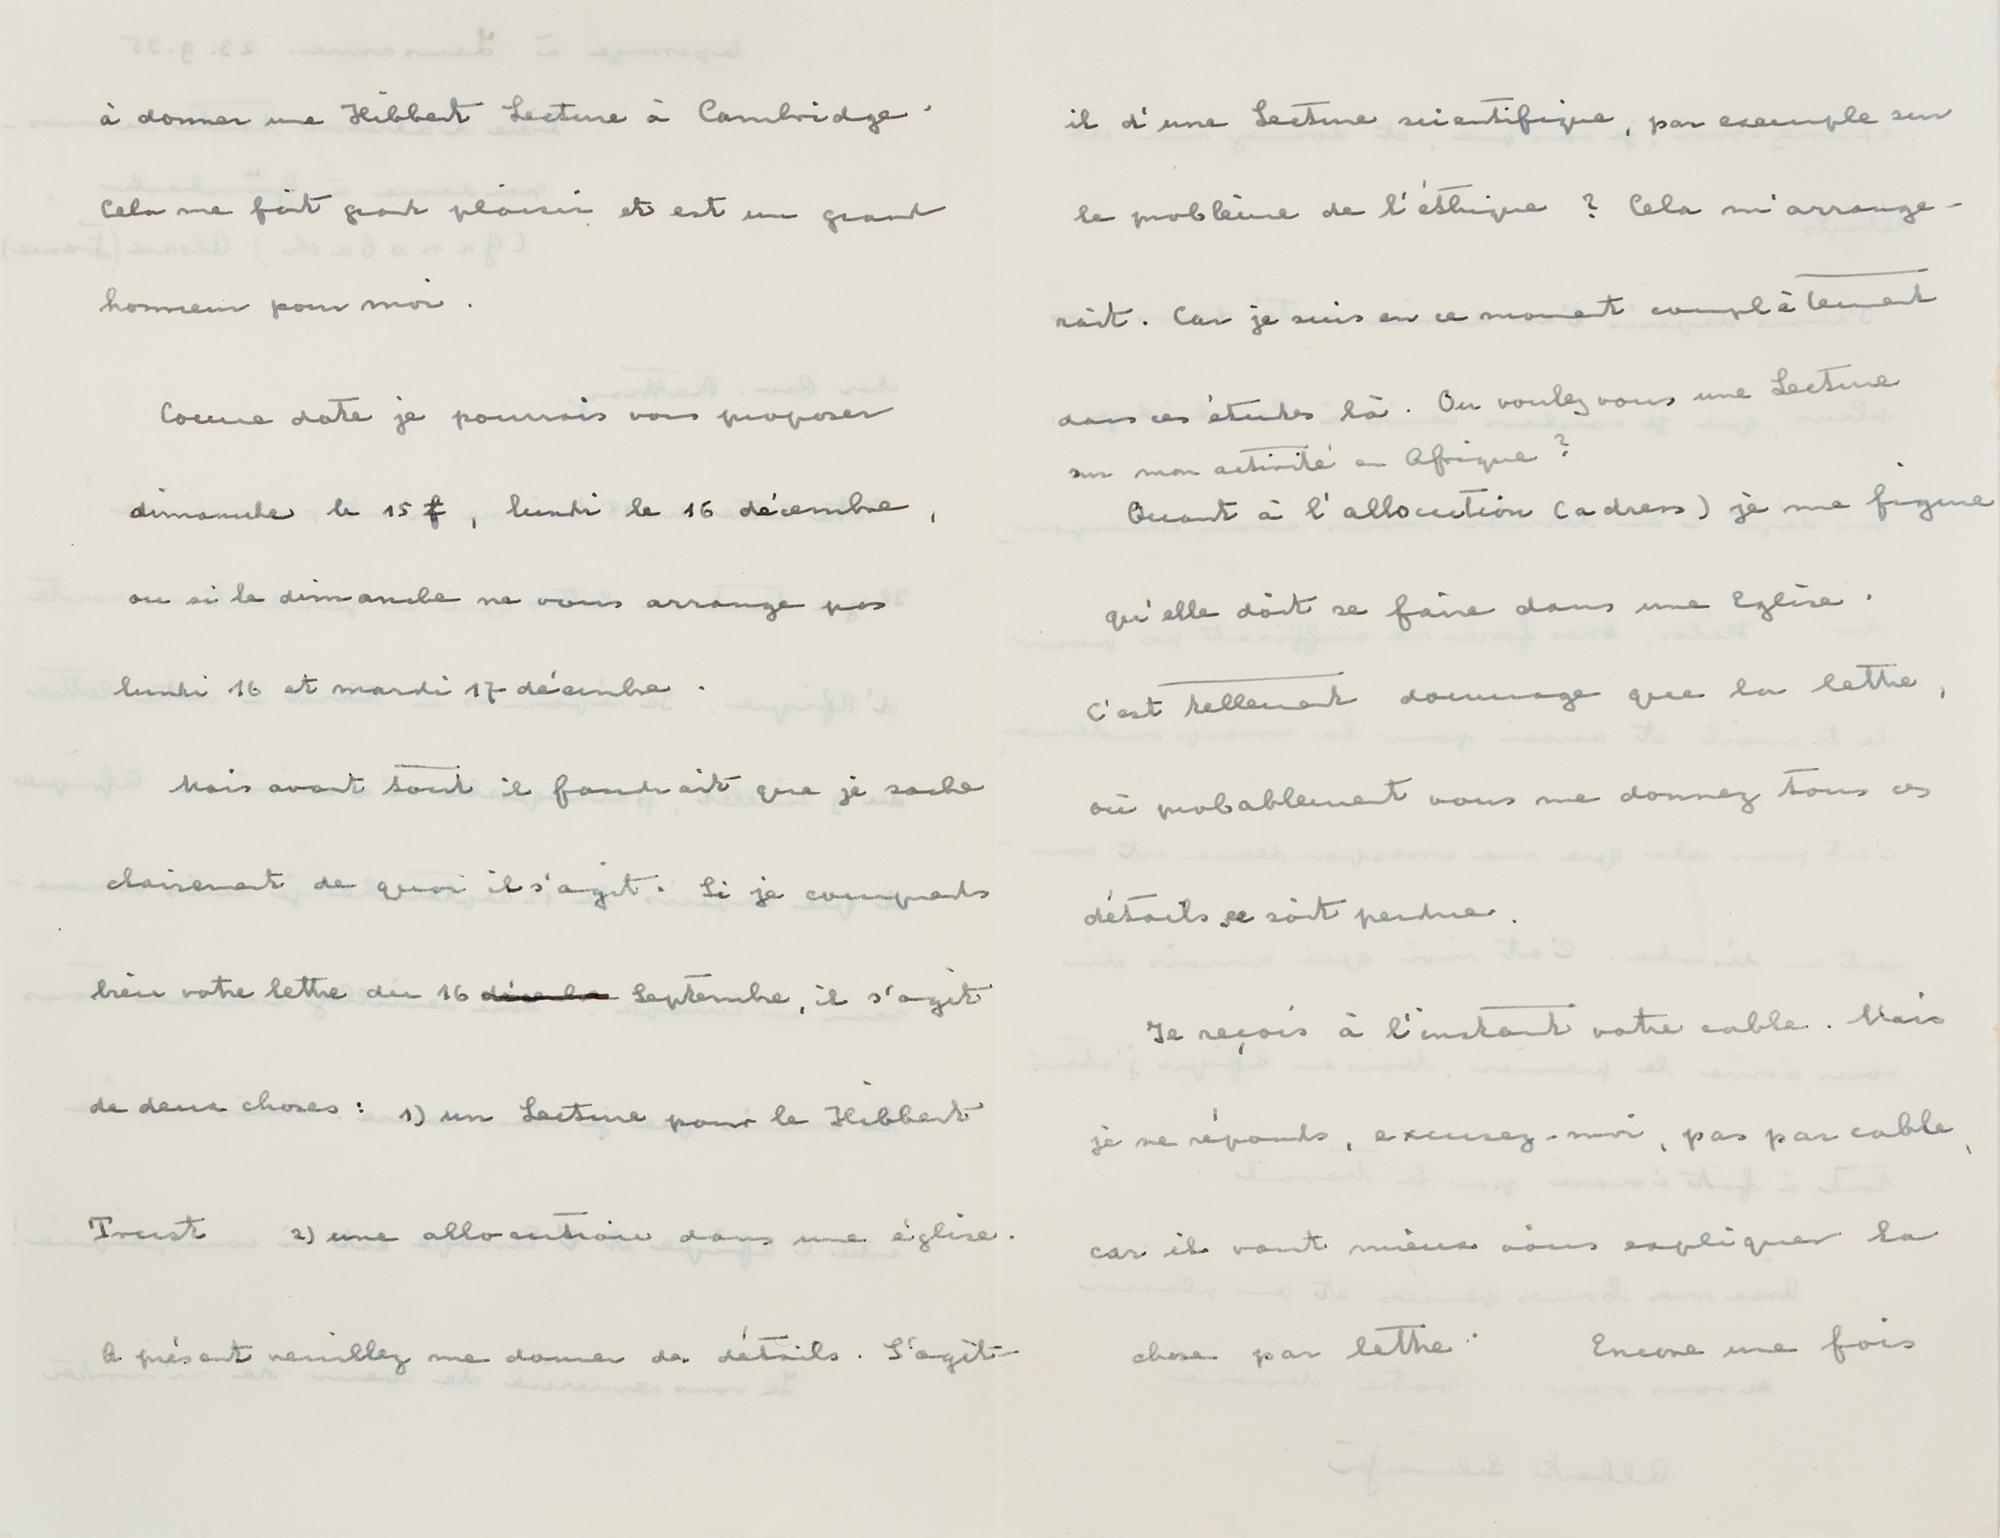 à donner une Hibbert Lecture à Cambridge.
Cela me fait grand plaisir et est un grand
honneur pour moi.
Comme date je pourrais vous proposer
dimanche le 15, lundi le 16 décembre,
ou si le dimanche ne vous arrange pas
lundi 16 et mardi 17 décembre.
Mais avant tout il faudrait que je sache
clairement de quoi il s'agit. Si je comprends
bien votre lettre du 16 décembre Septembre, il s'agit
de deux choses : 1) un Lecture pour le Hibbert
Trust 2) une allocution dans une église.
A présent veuillez me donner des détails. S'agit-
il d'une Lecture scientifique, par exemple sur
le problème de l'éthique ? Cela m'arrange-
rait. Car je suis en ce moment complètement
dans ces études là. Ou voulez vous une Lecture
sur mon activité en Afrique ?
Quant à l'allocution (adress) je me figure
qu'elle doit se faire dans une Eglise.
C'est tellement dommage que la lettre,
où probablement vous me donnez tous ces
détails se soit perdue.
Je reçois à l'instant votre cable. Mais
je ne réponds, excusez-moi, pas par cable,
car il vaut mieux vous expliquer la
chose par lettre. Encore une fois